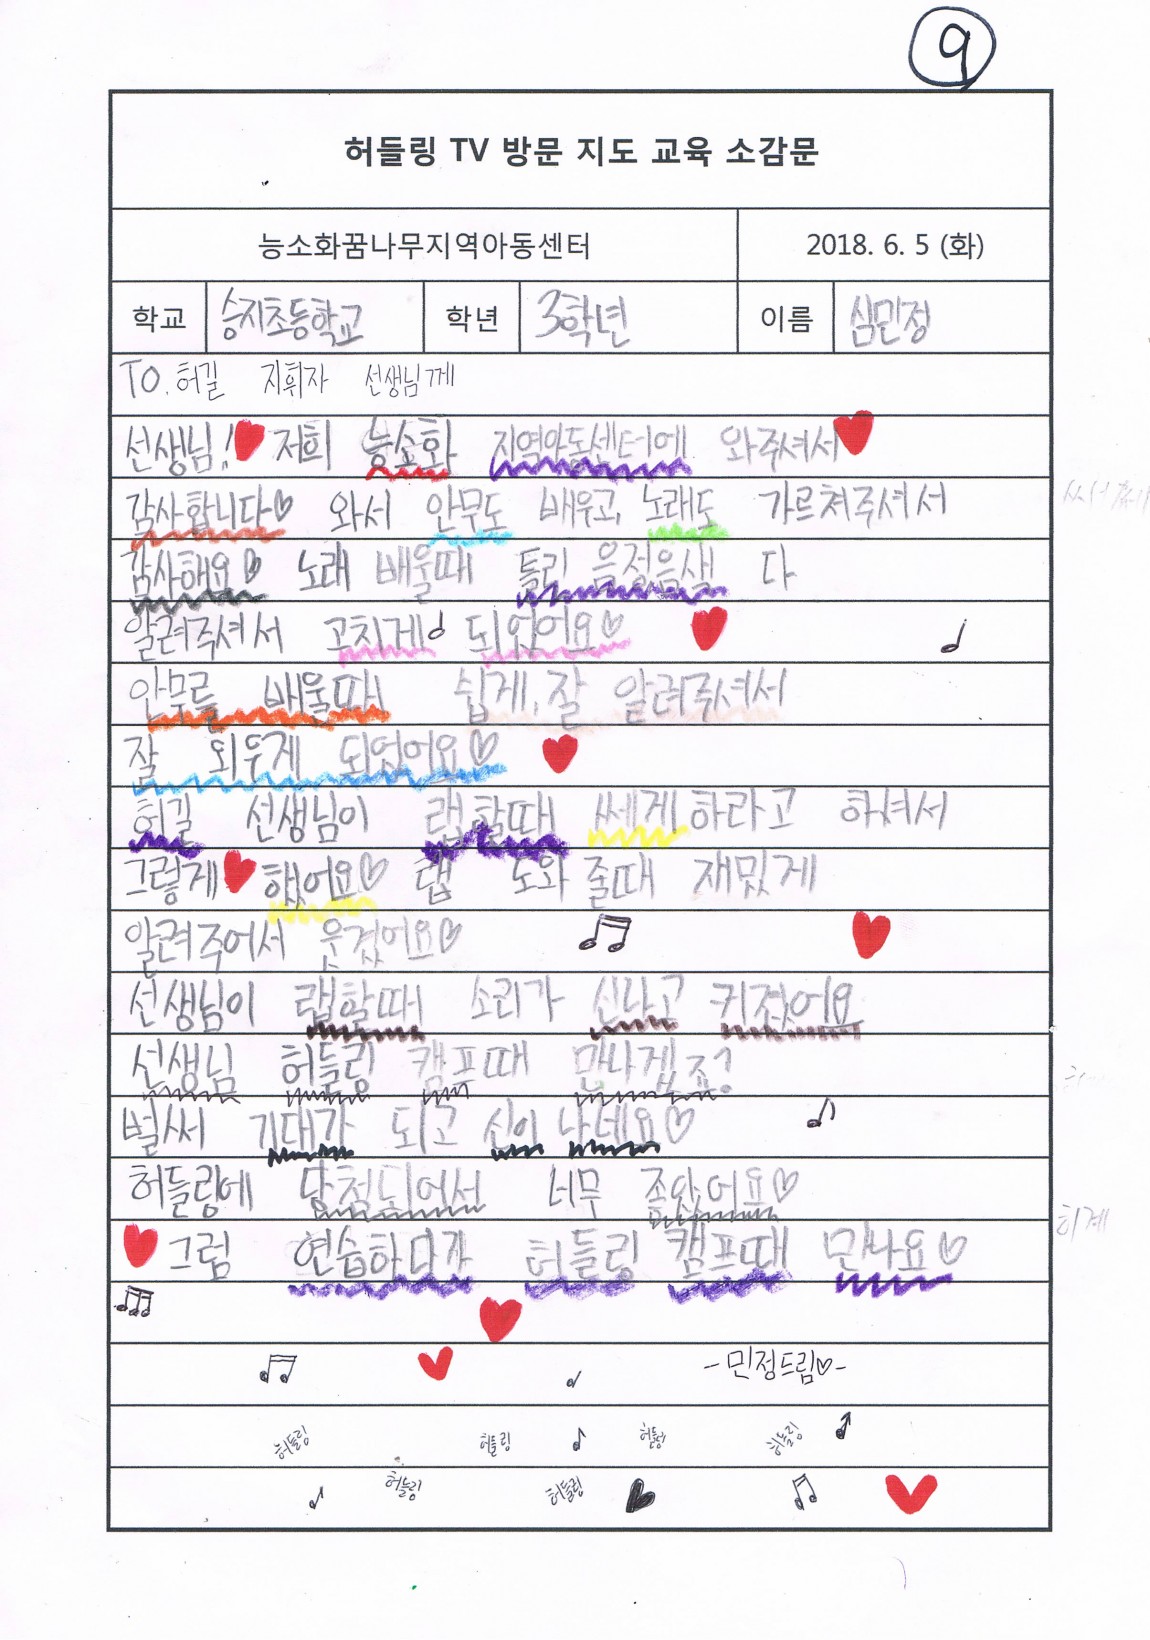 9
허들링 TV 방문 지도 교육 소감문
능소화꿈나무지역아동센터 2018. 6. 5 (화)
학교 승지초등학교 학년 3학년 이름 심민정
TO. 허길 지휘자 선생님께
선생님! 저희 능소화 지역아동센터에 와주셔서
감사합니다♡ 와서 안무도 배우고, 노래도 가르쳐주셔서
감사해요♡ 노래 배울때 틀린 음정음색 다
알려주셔서 고치게 되었어요♡
안무를 배울때 쉽게, 잘 알려주셔서
잘 외우게 되었어요♡
허길 선생님이 랩할때 쎄게 하라고 하셔서
그렇게 했어요♡ 랩 도와 줄때 재밌게
알려주어서 웃겼어요♡
선생님이 랩할때 소리가 신나고 커졌어요
선생님 허들링 캠프때 만나겠죠?
벌써 기대가 되고 신이 나네요♡
허들링에 당첨되어서 너무 좋았어요♡
그럼 연습하다가 허들링 캠프때 만나요♡
-민정드림♡-
허들링 허들링 허들링 허들링
허들링 허들링